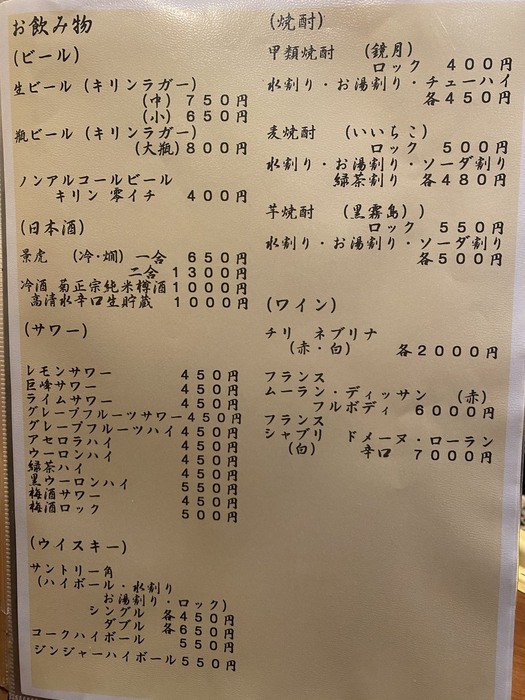 お飲み物
(ビール)
生ビール (キリンラガー)
(中) 750円
(小) 650円
瓶ビール (キリンラガー)
(大瓶) 800円
ノンアルコールビール
キリン 零イチ 400円
(日本酒)
景虎 (冷・燗) 一合 650円
二合 1300円
冷酒 菊正宗純米樽酒 1000円
高清水辛口生貯蔵 1000円
(サワー)
レモンサワー 450円
巨峰サワー 450円
ライムサワー 450円
グレープフルーツサワー 450円
グレープフルーツハイ 450円
アセロラハイ 450円
ウーロンハイ 450円
緑茶ハイ 450円
黒ウーロンハイ 550円
梅酒サワー 450円
梅酒ロック 500円
(ウイスキー)
サントリー角
(ハイボール・水割り
お湯割り・ロック)
シングル 各450円
ダブル 各650円
コークハイボール 550円
ジンジャーハイボール 550円
(焼酎)
甲類焼酎 (鏡月)
ロック 400円
水割り・お湯割り・チューハイ
各450円
麦焼酎 (いいちこ)
ロック 500円
水割り・お湯割り・ソーダ割り
緑茶割り 各480円
芋焼酎 (黒霧島))
ロック 550円
水割り・お湯割り・ソーダ割り
各500円
(ワイン)
チリ ネブリナ
(赤・白) 各2000円
フランス
ムーラン・ディッサン (赤)
フルボディ 6000円
フランス
シャブリ ドメーヌ・ローラン
(白) 辛口 7000円